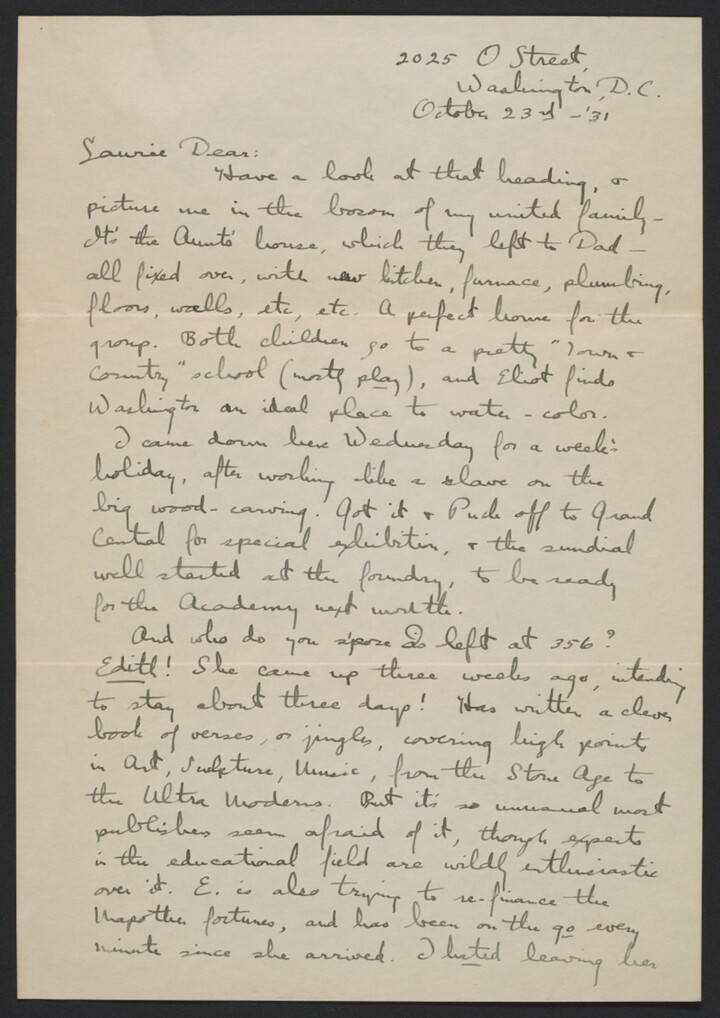 2025 O Street,
Washington, D.C.
October 23rd - '31
Laurie Dear:
Have a look at that heading, &
picture me in the bosom of my united family -
It's the Aunts' house, which they left to Dad -
all fixed over, with new kitchen, furnace, plumbing,
floors, walls, etc, etc. A perfect home for the
group. Both children go to a pretty "Town &
Country" school (mostly play), and Eliot finds
Washington an ideal place to water-color.
I came down here Wednesday for a week's
holiday, after working like a slave on the
big wood-carving. Got it & Puck off to Grand
Central for special exhibition, & the sundial
well started at the foundry, to be ready
for the Academy next month.
And who do you s'pose Is left at 356?
Edith! She came up three weeks ago, intending
to stay about three days! Has written a clever
book of verses, or jingles, covering high points
in Art, Sculpture, Music, from the Stone Age to
the Ultra Moderns. But it's so unusual most
publishers seem afraid of it, though experts
in the educational field are wildly enthusiastic
over it. E. is also trying to re-finance the
Mapother fortunes, and has been on the go every
minute since she arrived. I hated leaving her